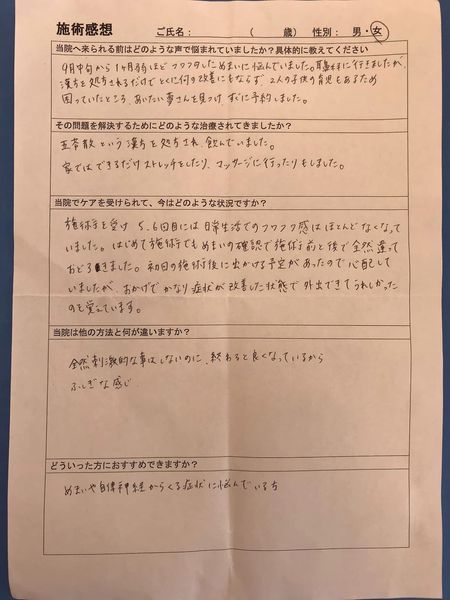 施術感想 ご氏名： （ 歳） 性別： 男・女
当院へ来られる前はどのような声で悩まれていましたか？具体的に教えてください
9月中旬から1ヶ月弱ほどフワフワしためまいに悩んでいました。耳鼻科に行きましたが、
漢方を処方されるだけでとくに何の改善にもならず、2人の子供の育児もあるため
困っていたところ、あいたい夢さんを見つけ、すぐに予約しました。
その問題を解決するためにどのような治療されてきましたか？
五苓散という漢方を処方され、飲んでいました。
家ではできるだけストレッチをしたり、マッサージに行ったりもしました。
当院でケアを受けられて、今はどのような状況ですか？
施術を受け 5、6回目には日常生活でのフワフワ感はほとんどなくなって
いました。はじめて施術でもめまいの確認で施術前と後で全然違って
おどろきました。初日の施術後に出かける予定があったので心配して
いましたが、おかげでかなり症状が改善した状態で外出できてうれしかった
のを覚えています。
当院は他の方法と何が違いますか？
全然刺激的な事はしないのに、終わると良くなっているから
ふしぎな感じ
どういった方におすすめできますか？
めまいや自律神経からくる症状に悩んでいる方